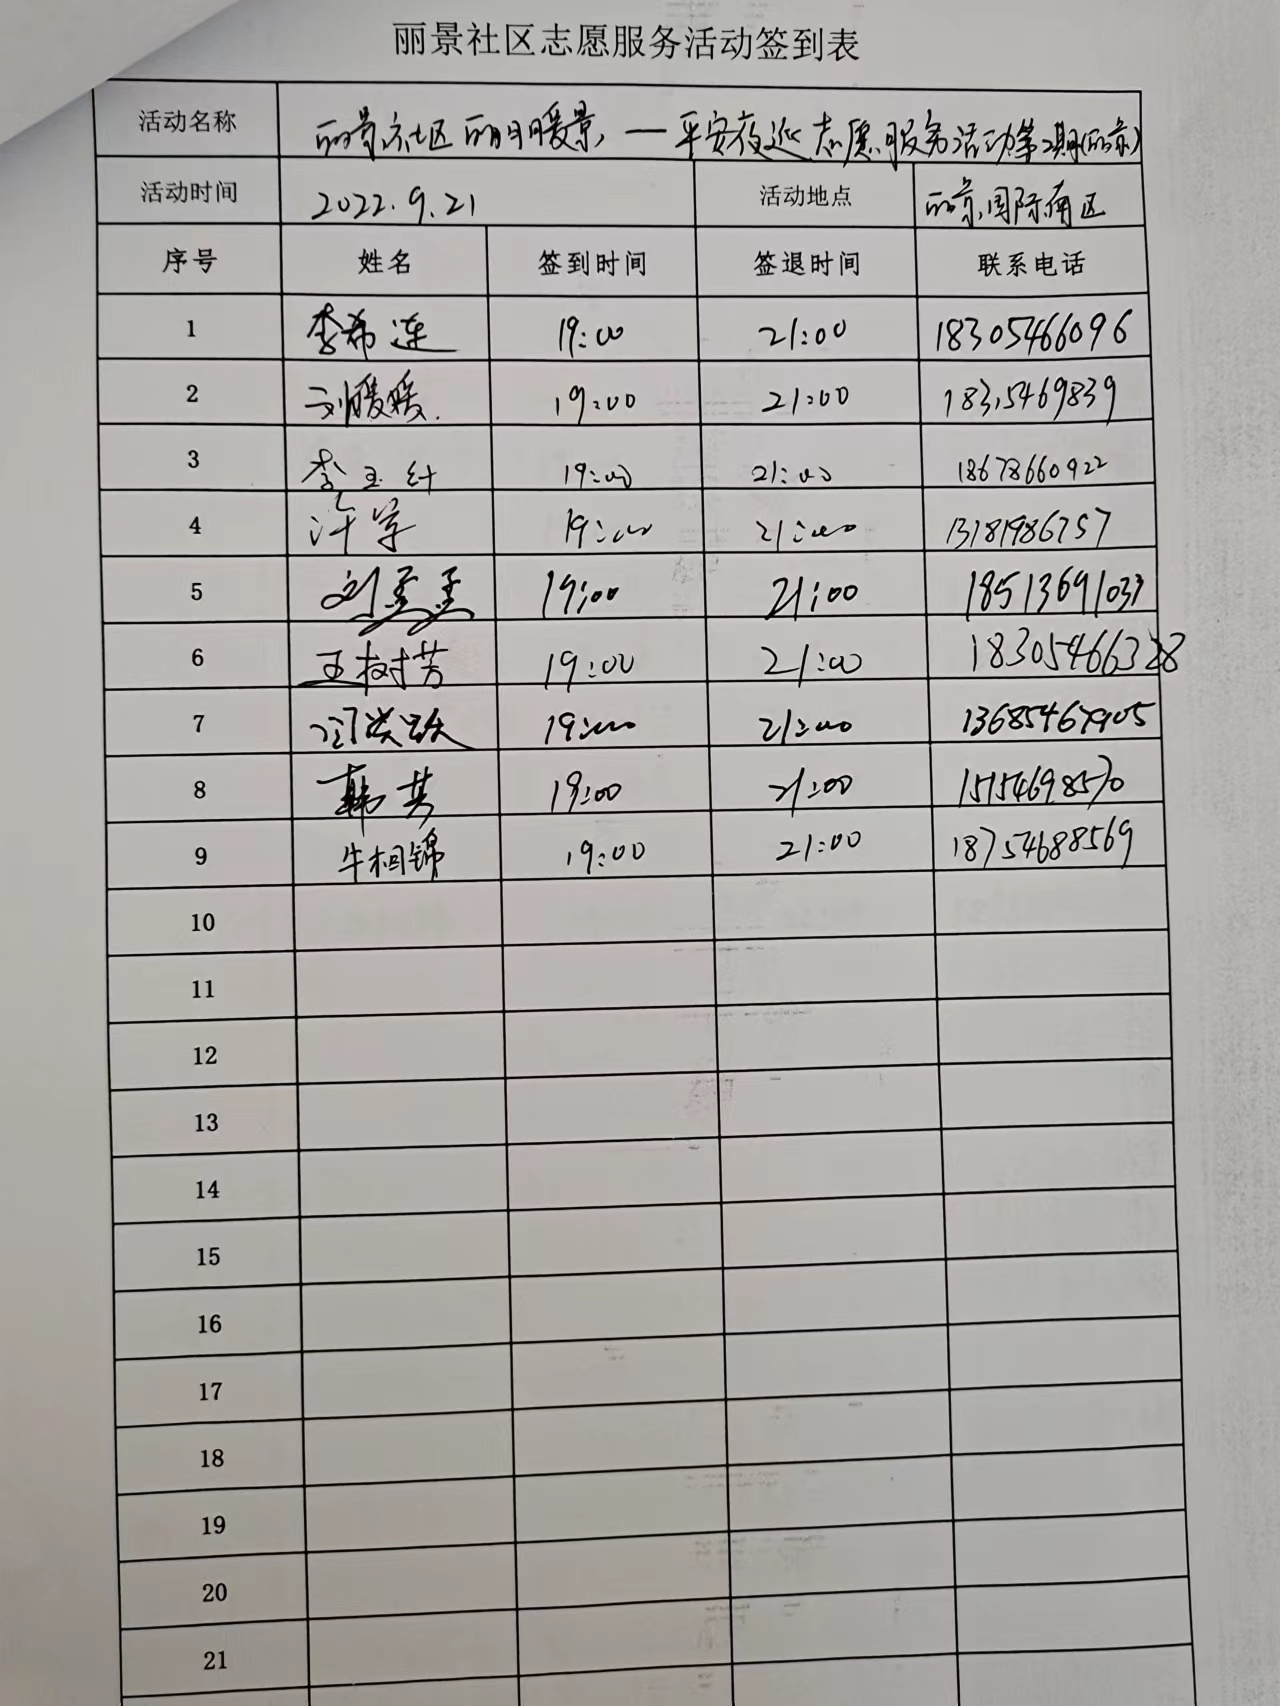 丽景社区志愿服务活动签到表
活动名称 丽景社区 丽日暖景 — 平安夜巡 志愿服务活动第2期(丽景)
活动时间 2022.9.21 活动地点 丽景国际南区
序号 姓名 签到时间 签退时间 联系电话
1 李希连 19:00 21:00 18305466096
2 刘暖暖 19:00 21:00
3 李玉叶 19:00 21:00 18678660922
4 许宁 19:00 21:00 13181986757
5 刘孟孟 19:00 21:00 18513691033
6 王树芳 19:00 21:00
7 19:00 21:00 13685467905
8 韩其 19:00 21:00 15154698570
9 牛相锦 19:00 21:00 18754688569
10
11
12
13
14
15
16
17
18
19
20
21